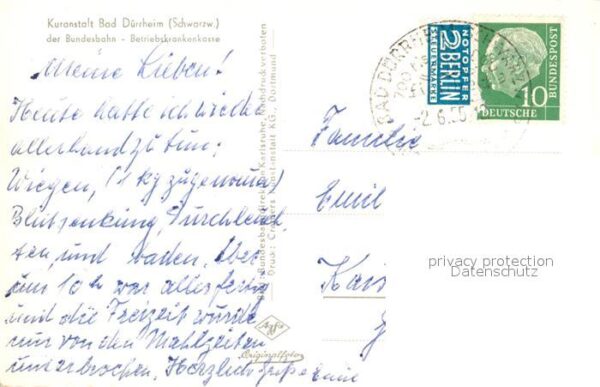 Kuranstalt Bad Dürrheim (Schwarzw.)
der Bundesbahn - Betriebskrankenkasse
Meine Lieben!
Heute hatte ich wieder
allerhand zu tun:
Wiegen, (1 kg zugenomm)
Blutsenkung, Durchleuch
ten, und baden. Aber
um 10 h war alles fertig
und die Freizeit wurde
nur von den Mahlzeiten
unterbrochen. Herzliche Grüße Emil
Bundesbahndirektion Karlsruhe, Nachdruck verboten
Druck: Kunstanstalt KG., Dortmund
Agfa
Originalfoto
NOTOPFER
2 BERLIN
STEUERMARKE
BAD DÜRRHEIM
-2.6.55
10
DEUTSCHE
BUNDESPOST
Familie
Emil
Kais
privacy protection
Datenschutz